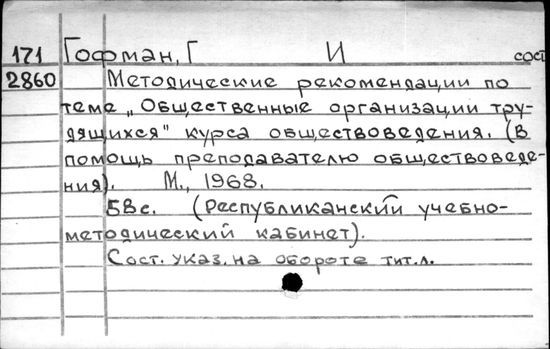 171 Гофман, Г И сост
2860 Методические рекомендации по
теме „Общественные организации тру-
дящихся" курса обществоведения. (В
помощь преподавателю обществоведе-
ния). М., 1968.
58 с. (Республиканский учебно-
методический кабинет).
Сост. указ. на обороте тит. л.